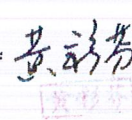 黄彩芬